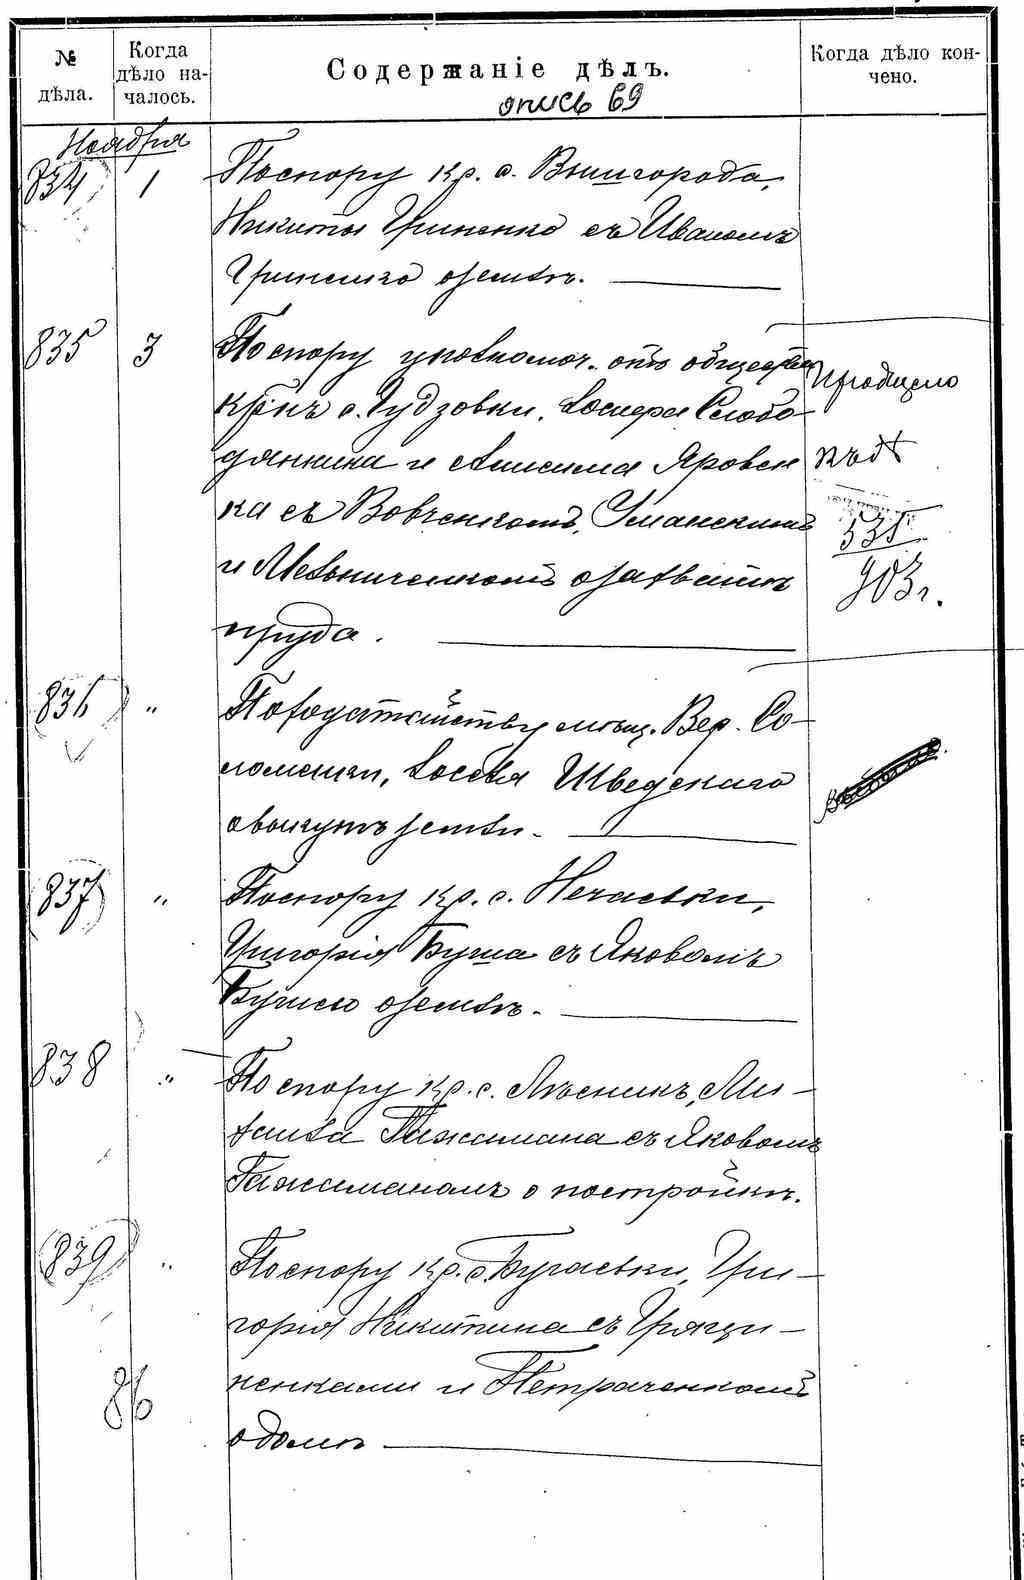 № дѣла.
Когда дѣло началось.
Содержаніе дѣлъ.
Когда дѣло кончено.
опись 69
Ноября
834 1 По спору кр. с. Вышгорода,
Никиты Гриненко съ Иваномъ
Гриненко о землѣ.
835 3 По спору уполномоч. отъ общества
кр-нъ с. Гудзовки, Іосифа Слобо-
дянника и Анисима Яровен
ка съ Вовченкомъ, Уманскимъ
и Мельниченкомъ о захватѣ
пруда.
Пріобщено
къ д.
535
903 г.
836 " По ходатайству мѣщ. Вер. Со-
ломенки, Іоселя Шведскаго
о выкупѣ земли.
837 " По спору кр. с. Нечаевки,
Григорія Буша съ Яковомъ
Бушею о землѣ.
838 " По спору кр. с. Лѣсникъ, Ми-
хаила Гажамана съ Яковомъ
Гажаманомъ о постройкѣ.
839 " По спору кр. с. Бугаевки, Гри-
горія Никитина съ Гряци-
ненками и Петраченкомъ
о домѣ
86